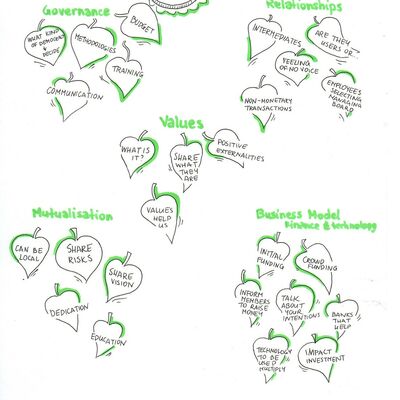 Governance
BUDGET
WHAT KIND
OF DEMOCRACY
+
DECIDE
METHODOLOGIES
TRAINING
COMMUNICATION
Relationships
INTERMEDIATES
ARE THEY
USERS OR
FEELING
OF NO VOICE
NON-MONETARY
TRANSACTIONS
EMPLOYEES
SELECTING
MANAGING
BOARD
Values
WHAT IS
IT?
SHARE
WHAT
THEY
ARE
POSITIVE
EXTERNALITIES
VALUES
HELP
US
Mutualisation
CAN BE
LOCAL
SHARE
RISKS
SHARE
VISION
DEDICATION
EDUCATION
Business Model
Finance & technology
INITIAL
FUNDING
CROWD
FUNDING
INFORM
MEMBERS
TO RAISE
MONEY
TALK
ABOUT
YOUR
INTENTIONS
BANKS
THAT
HELP
TECHNOLOGY
TO BE
USED
MULTIPLY
IMPACT
INVESTMENT